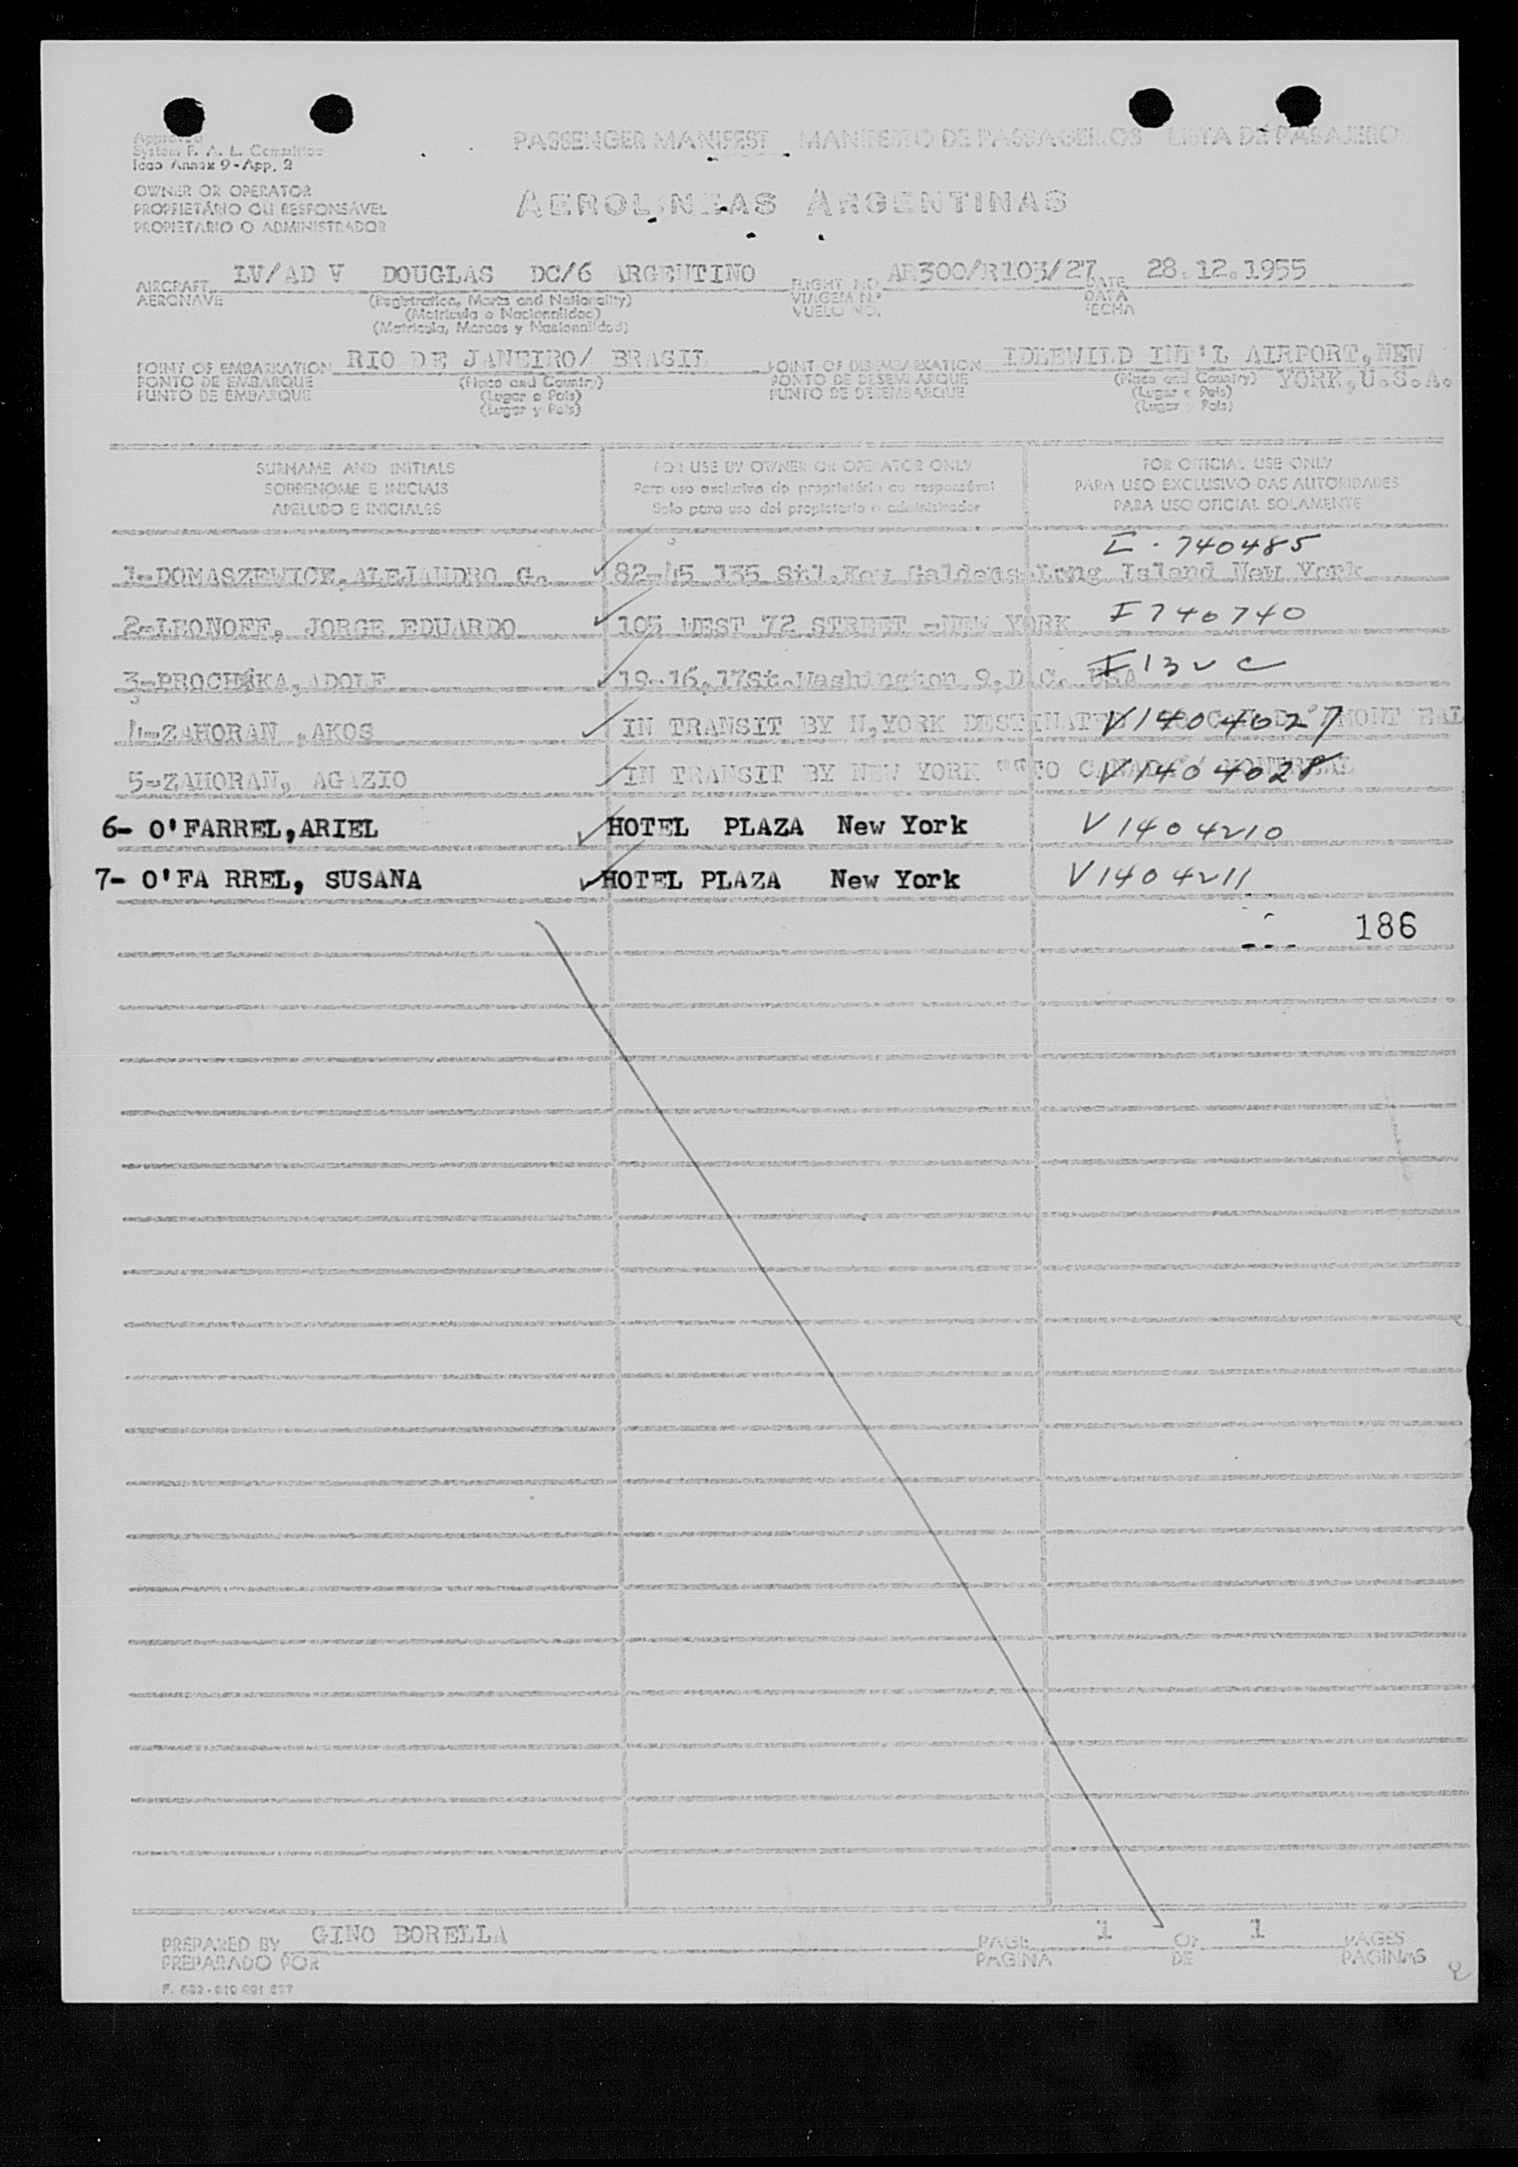 Approved
System F. A. L. Committee
Icao Annex 9-App. 2
PASSENGER MANIFEST MANIFESTO DE PASSAGEIROS LISTA DE PASAJEROS
OWNER OR OPERATOR
PROPRIETÁRIO OU RESPONSÁVEL
PROPIETARIO O ADMINISTRADOR
AEROLINEAS ARGENTINAS
AIRCRAFT LV/AD V DOUGLAS DC/6 ARGENTINO FLIGHT NO. AR300/R103/27 DATE 28.12.1955
AERONAVE (Registration, Marks and Nationality) VIAGEM N.º DATA
(Matrícula e Nacionalidade) VUELO NO. FECHA
(Matricula, Marcas y Nacionalidad)
POINT OF EMBARKATION RIO DE JANEIRO/ BRASIL POINT OF DISEMBARKATION IDLEWILD INT'L AIRPORT, NEW
PONTO DE EMBARQUE (Place and Country) PONTO DE DESEMBARQUE (Place and Country) YORK, U.S.A.
PUNTO DE EMBARQUE (Lugar e País) PUNTO DE DESEMBARQUE (Lugar e País)
(Lugar y País) (Lugar y País)
SURNAME AND INITIALS FOR USE BY OWNER OR OPERATOR ONLY FOR OFFICIAL USE ONLY
SOBRENOME E INICIAIS Para uso exclusivo do proprietário ou responsável PARA USO EXCLUSIVO DAS AUTORIDADES
APELLIDO E INICIALES Solo para uso del propietario o administrador PARA USO OFICIAL SOLAMENTE
I-740485
1-DOMASZEWICK, ALEJANDRO G. 82-45 135 Stl. Kew Galdens Long Island New York
2-LEONOFF, JORGE EDUARDO 105 WEST 72 STREET -NEW YORK I740740
3-PROCHAKA, ADOLF 19-16, 17St. Washington 9, D.C. USA I132C
4-ZAHORAN ,AKOS IN TRANSIT BY N,YORK DESTINATED V1404027 MONTREAL
5-ZAHORAN, AGAZIO IN TRANSIT BY NEW YORK "" TO CANADA MONTREAL V1404028
6- O'FARREL,ARIEL HOTEL PLAZA New York V1404210
7- O'FA RREL, SUSANA HOTEL PLAZA New York V1404211
186
PREPARED BY GINO BORELLA PAGE 1 OF 1 PAGES
PREPARADO POR PAGINA DE PAGINAS